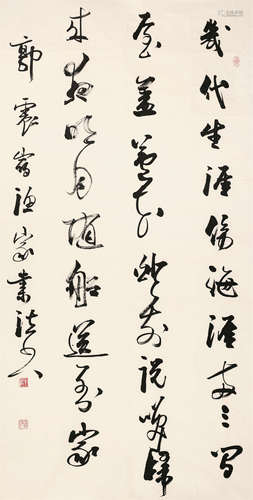 幾代生涯傍海涯两三間
屋蓋蘆花燈前說笑歸
来夜明月随船送到家
郭震宿漁家